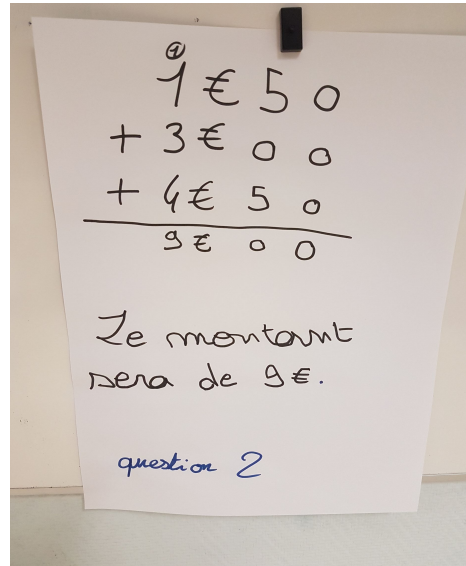 ①
1€50
+ 3€00
+ 4€50
9€00
Le montant
sera de 9€.
question 2